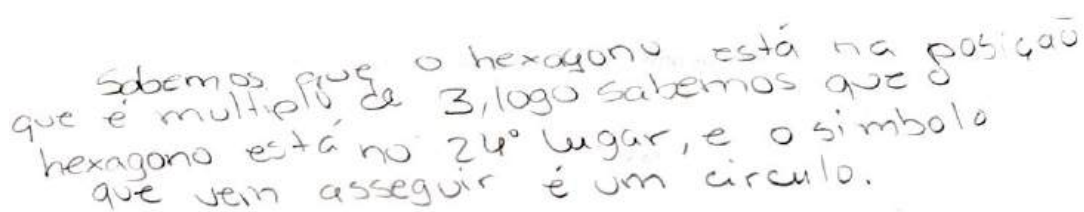 Sabemos que o hexagono está na posição
que é multiplo de 3, logo sabemos que o
hexagono está no 24º lugar, e o simbolo
que vem asseguir é um circulo.